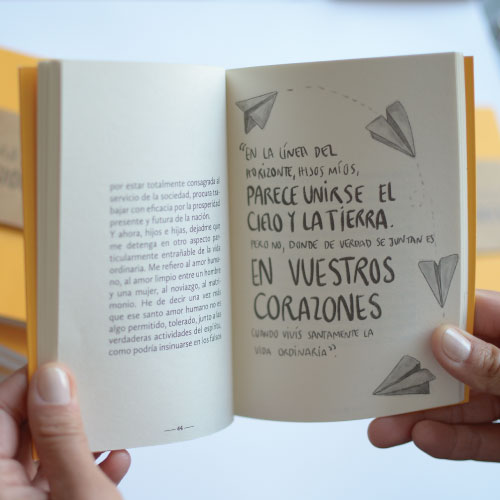 por estar totalmente consagrada al
servicio de la sociedad, procura tra-
bajar con eficacia por la prosperidad
presente y futura de la nación.
Y ahora, hijos e hijas, dejadme que
me detenga en otro aspecto par-
ticularmente entrañable de la vida
ordinaria. Me refiero al amor huma-
no, al amor limpio entre un hombre
y una mujer, al noviazgo, al matri-
monio. He de decir una vez más
que ese santo amor humano no es
algo permitido, tolerado, junto a las
verdaderas actividades del espíritu,
como podría insinuarse en los falsos
44
“EN LA LÍNEA DEL
HORIZONTE, HIJOS MÍOS,
PARECE UNIRSE EL
CIELO Y LA TIERRA.
PERO NO, DONDE DE VERDAD SE JUNTAN ES
EN VUESTROS
CORAZONES
CUANDO VIVÍS SANTAMENTE LA
VIDA ORDINARIA”.